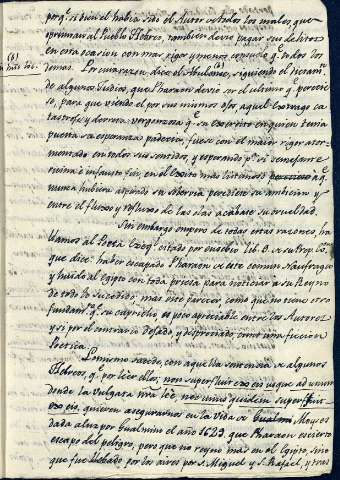 porq.e si bien el habia sido el Autor de todos los males, que
oprimian al Pueblo Hebreo, tambien devio pagar sus delitos
en esta ocasion con mas rigor y menos consuelo q.e todos los
demas. Por cuya razon dice el Abulense, siguiendo el
de algunos Judios, que Pharaon devio ser el ultimo q.e perecie
se, para que viendo el por sus mismos ojos aquel
tastrofe y derrota vergonzosa q.e su exercito en quien tenia
puesta su esperanza padecia, fuese con el maior rigor ator-
mentado en todos sus sentidos, y esperando p.a si semejante
ruina è infausto fin, en el exito mas lastimoso a q.e
nunca hubiera aspirado su sobervia perdiese su ambicion y
entre el fluxo y refluxo de las olas acabase su crueldad.
Sin embargo empero de todas estas razones, ha
llamos al Poeta citado por Eusebio lib. 9. de
que dice haber escapado Pharaon de este comun Naufragio
y huido al Egipto con toda priesa para noticiar a su Reyno
de todo lo sucedido, mas este parecer, como que no tiene otro
fundam.to q.e su capricho es poco apreciable entre los Autores
y si por el contrario dejado y despreciado, como una ficcion
Poetica.
Lo mismo sucede, con aquella sentencia de algunos
Hebreos, q.e por leér ellos, non superfluit ex eis usque ad unum
donde la Vulgata nra leé, nec unus quidem superfluit
ex eis, quieren asegurarnos en la Vida de Moyses
dada a luz por Gualmino el año 1629. que Pharaon es cierto
escapo del peligro, pero que no reyno mas en el Egipto, sino
que fue llebado por los aires por S. Miguel y S. Rafael, y tras